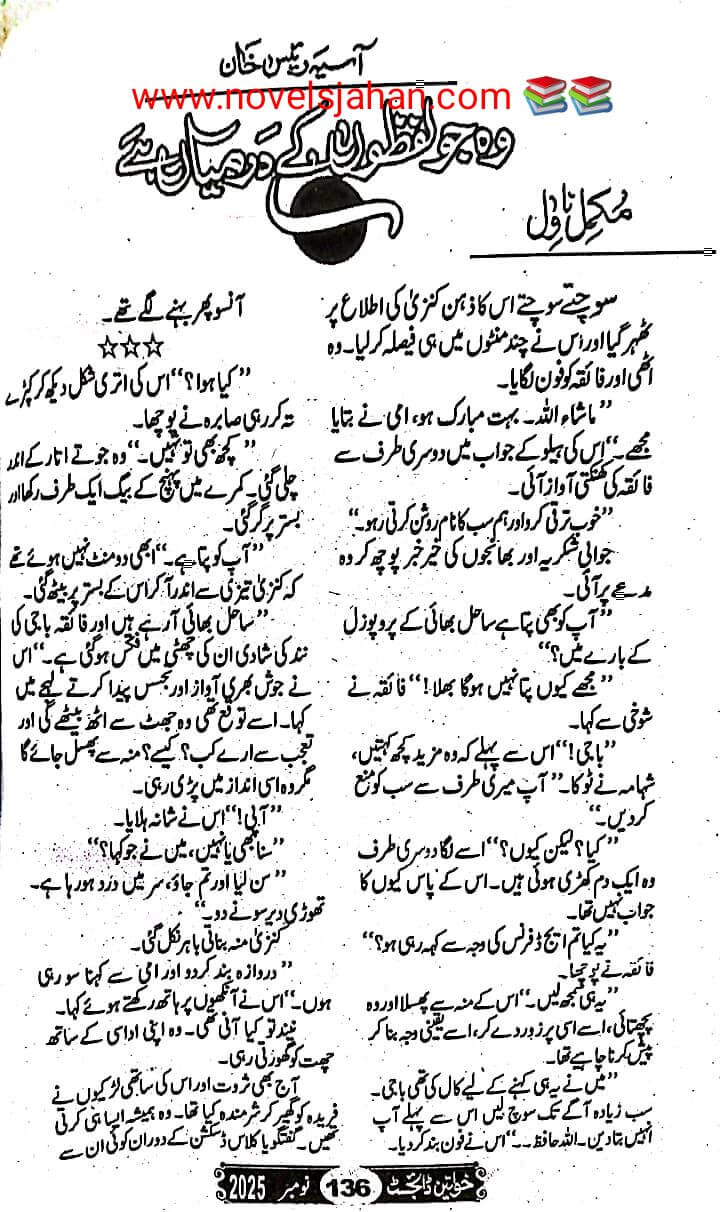 آسیہ رئیس خان
www.novelsjahan.com
وہ جو لفظوں کے درمیاں ہے
مکمل ناول
سوچتے سوچتے اس کا ذہن کنزیٰ کی اطلاع پر
ٹھہر گیا اور اس نے چند منٹوں میں ہی فیصلہ کر لیا۔ وہ
اٹھی اور فائقہ کو فون لگایا۔
”ماشاء اللہ۔ بہت مبارک ہو، امی نے بتایا
مجھے۔“ اس کی ہیلو کے جواب میں دوسری طرف سے
فائقہ کی کھنکتی آواز آئی۔
”خوب ترقی کرو اور ہم سب کا نام روشن کرتی رہو۔“
جوابی شکریہ اور بھانجوں کی خیر خبر پوچھ کر وہ
مدعے پر آئی۔
”آپ کو بھی پتا ہے ساحل بھائی کے پروپوزل
کے بارے میں؟“
”مجھے کیوں پتا نہیں ہوگا بھلا!“ فائقہ نے
شوخی سے کہا۔
”باجی!“ اس سے پہلے کہ وہ مزید کچھ کہتیں،
شہامہ نے ٹوکا۔ ”آپ میری طرف سے سب کو منع
کر دیں۔“
”کیا؟ لیکن کیوں؟“ اسے لگا دوسری طرف
وہ ایک دم کھڑی ہوئی ہیں۔ اس کے پاس کیوں کا
جواب نہیں تھا۔
”یہ کیا تم ایج ڈفرنس کی وجہ سے کہہ رہی ہو؟“
فائقہ نے پوچھا۔
”یہ ہی سمجھ لیں۔“ اس کے منہ سے پھسلا اور وہ
پچھتائی، اسے اسی پر زور دے کر، اسے یقینی وجہ بنا کر
پیش کرنا چاہیے تھا۔
”میں نے یہ ہی کہنے کے لیے کال کی تھی باجی۔
سب زیادہ آگے تک سوچ لیں اس سے پہلے آپ
انہیں بتا دیں۔ اللہ حافظ۔۔“ اس نے فون بند کر دیا۔
آنسو پھر بہنے لگے تھے۔
☆☆☆
”کیا ہوا؟“ اس کی اتری شکل دیکھ کر کپڑے
تہ کر رہی صابرہ نے پوچھا۔
”کچھ بھی تو نہیں۔“ وہ جوتے اتار کے اندر
چلی گئی۔ کمرے میں پہنچ کے بیگ ایک طرف رکھا اور
بستر پر گر گئی۔
”آپ کو پتا ہے۔“ ابھی دو منٹ نہیں ہوئے تھے
کہ کنزیٰ تیزی سے اندر آ کر اس کے بستر پر بیٹھ گئی۔
”ساحل بھائی آ رہے ہیں اور فائقہ باجی کی
نند کی شادی ان کی چھٹی میں فکس ہو گئی ہے۔“ اس
نے جوش بھری آواز اور تجسس پیدا کرتے لہجے میں
کہا۔ اسے توقع تھی وہ جھٹ سے اٹھ بیٹھے گی اور
تعجب سے ارے کب؟ کیسے؟ منہ سے پھسل جائے گا
مگر وہ اسی انداز میں پڑی رہی۔
”آپی!“ اس نے شانہ ہلایا۔
”سنا بھی یا نہیں، میں نے جو کہا؟“
”سن لیا اور تم جاؤ، سر میں درد ہو رہا ہے۔
تھوڑی دیر سونے دو۔“
کنزیٰ منہ بناتی باہر نکل گئی۔
”دروازہ بند کر دو اور امی سے کہنا سو رہی
ہوں۔“ اس نے آنکھوں پر ہاتھ رکھتے ہوئے کہا۔
نیند تو کیا آنی تھی۔ وہ اپنی اداسی کے ساتھ
چھت کو گھورتی رہی۔
آج بھی ثروت اور اس کی ساتھی لڑکیوں نے
فریدہ کو گھیر کر شرمندہ کیا تھا۔ وہ ہمیشہ ایسا ہی کرتی
تھیں۔ گفتگو یا کلاس ڈسکشن کے دوران کوئی ان سے
خواتین ڈائجسٹ 136 نومبر 2025